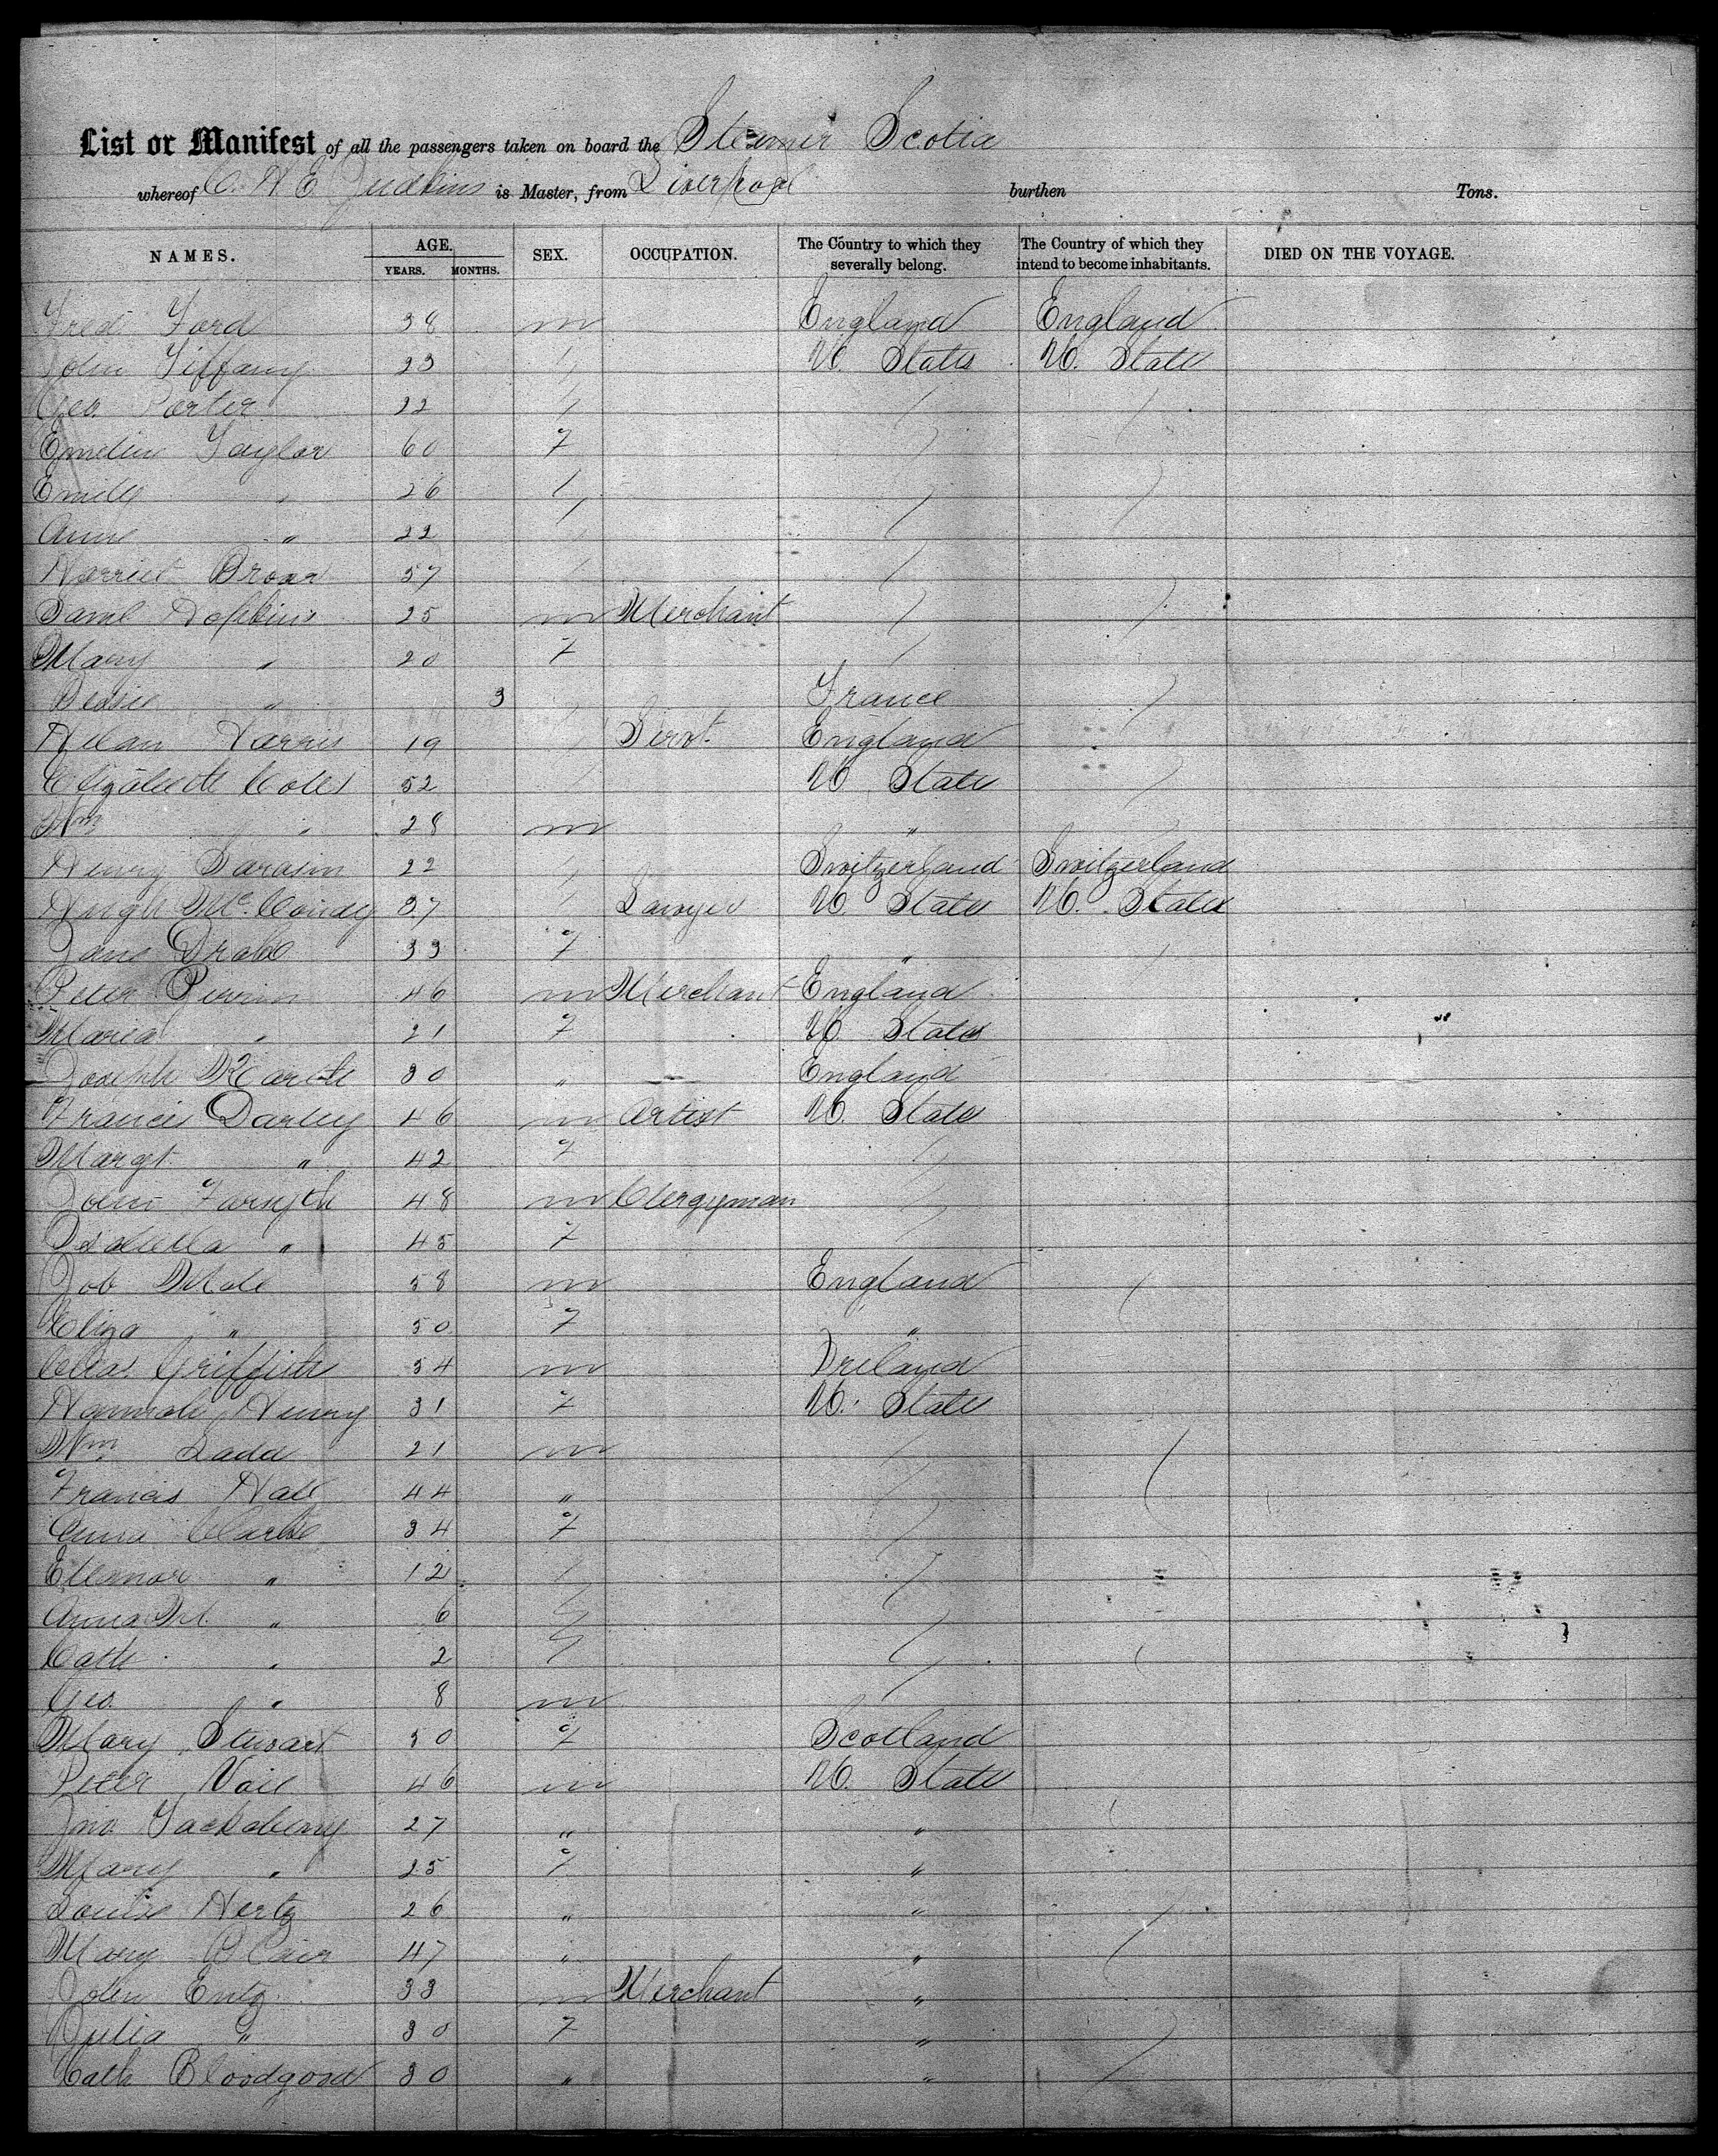 List or Manifest of all the passengers taken on board the Steamer Scotia
whereof C. H. E. Judkins is Master, from Liverpool burthen Tons.
NAMES. AGE. YEARS. MONTHS. SEX. OCCUPATION. The Country to which they severally belong. The Country of which they intend to become inhabitants. DIED ON THE VOYAGE.
Fred Ford 38 m England England
John Tiffany 23 U. States U. State
Geo. Porter 22
Emeline Taylor 60 F
Emily " 26
Anne " 22
Harriet 57
Saml Hopkins 25 m Merchant
Mary " 20 F
Bessie " 3 France
Harris 19 Servt. England
Elizabeth Coles 52 U State
Wm " 28 m "
Henry Sarasin 22 Switzerland Switzerland
Hugh 37 Lawyer U. State U. States
Jane Drake 33 F "
Peter 46 m Merchant England
Maria " 21 F U. States
Joseph 30 " England
Francis Darley 46 m Artist U. State
Margt " 42 F
John Forsyth 48 m Clergyman
Isabella " 45 F
Job Mole 58 m England
Eliza " 50 F "
Chas. Griffith 54 m Ireland
Hannah Henry 31 F U. State
Wm Ladd 21 m
Francis Hall 44 "
Anna Clarke 34 F
Eleanor " 12
Anna M. " 6
Cath " 2
Geo. " 8 m
Mary Stewart 50 F Scotland
Peter Vail 46 m U. State
Jno. Tackaberry 27 " "
Mary " 25 F "
Louise Hertz 26 " "
Mary Blair 47 " "
John Entz 33 m Merchant "
Julia " 30 F "
Cath Bloodgood 30 " "